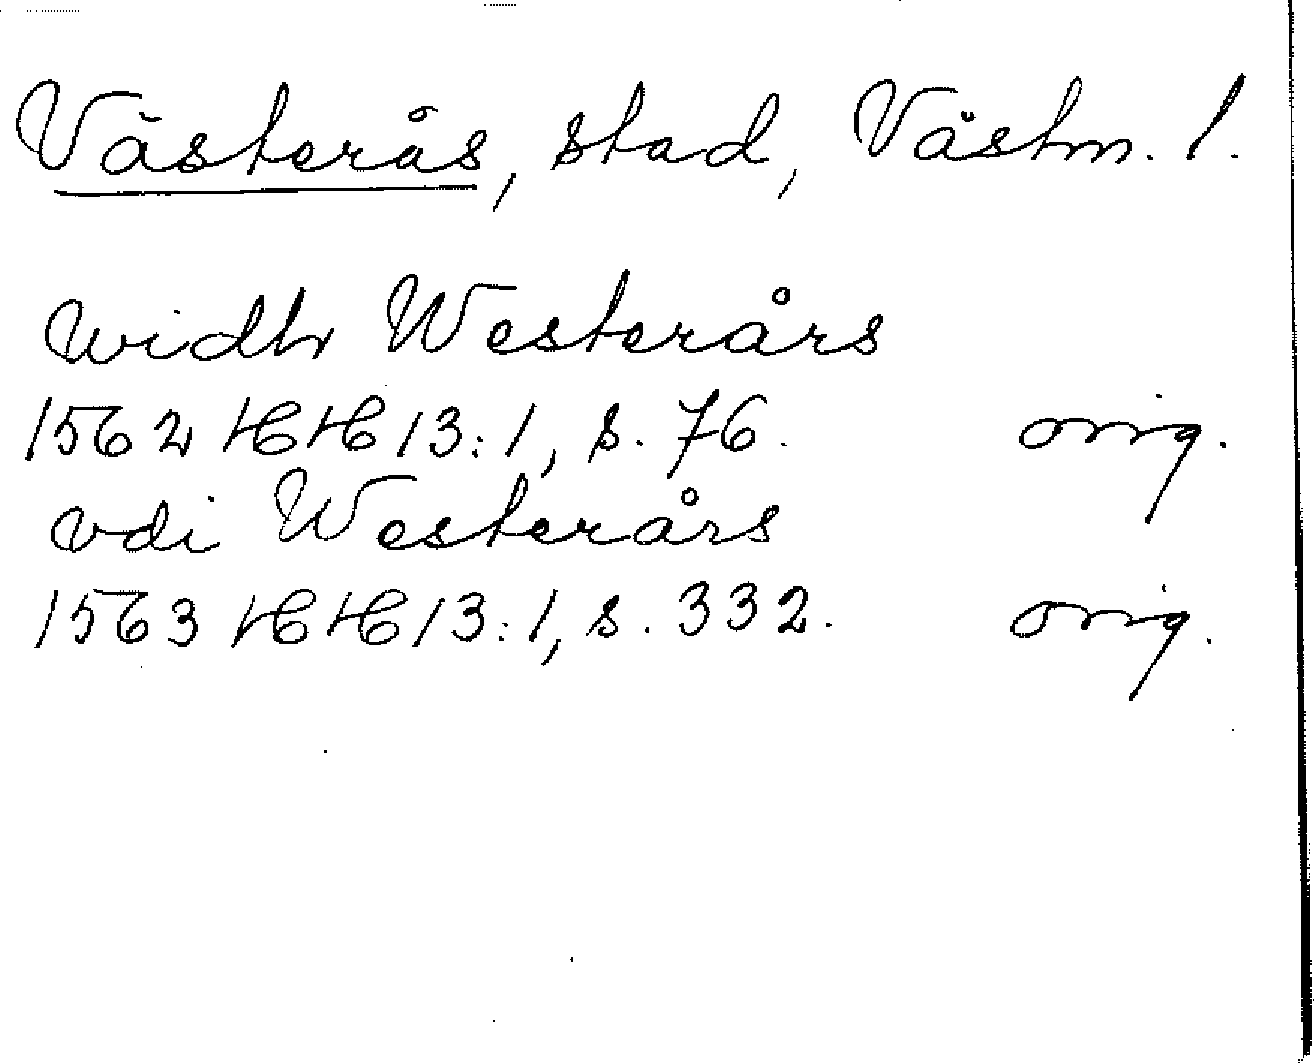 Västerås, stad, Västm. l.
widh Westerårs
1562 HH 13:1, s. 76. orig.
vdi Westerårs
1563 HH 13:1, s. 332. orig.